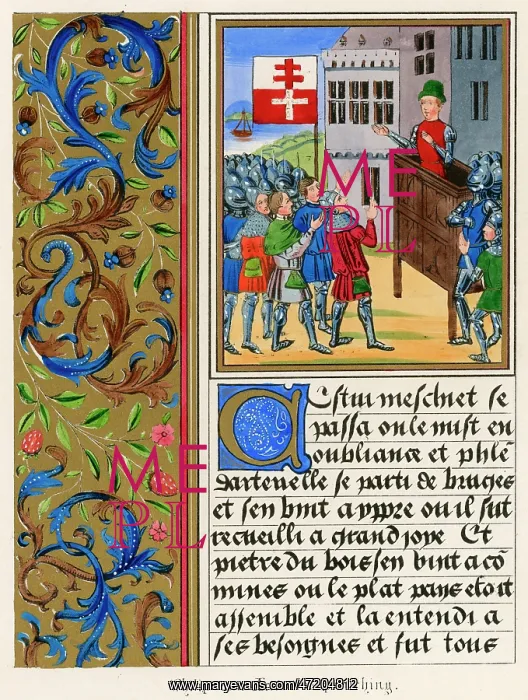 Cestui meschiet se
passa on le mist en
oubliance et phlē
dartevelle se parti de bruges
et sen vint a yppre ou il fut
recueilli a grand joye Et
pietre du bois sen vint a cō
mines ou le plat pays estoit
assemble et la entendi a
ses besoignes et fut tous
ME
PL
ME
PL
www.maryevans.com/47204812